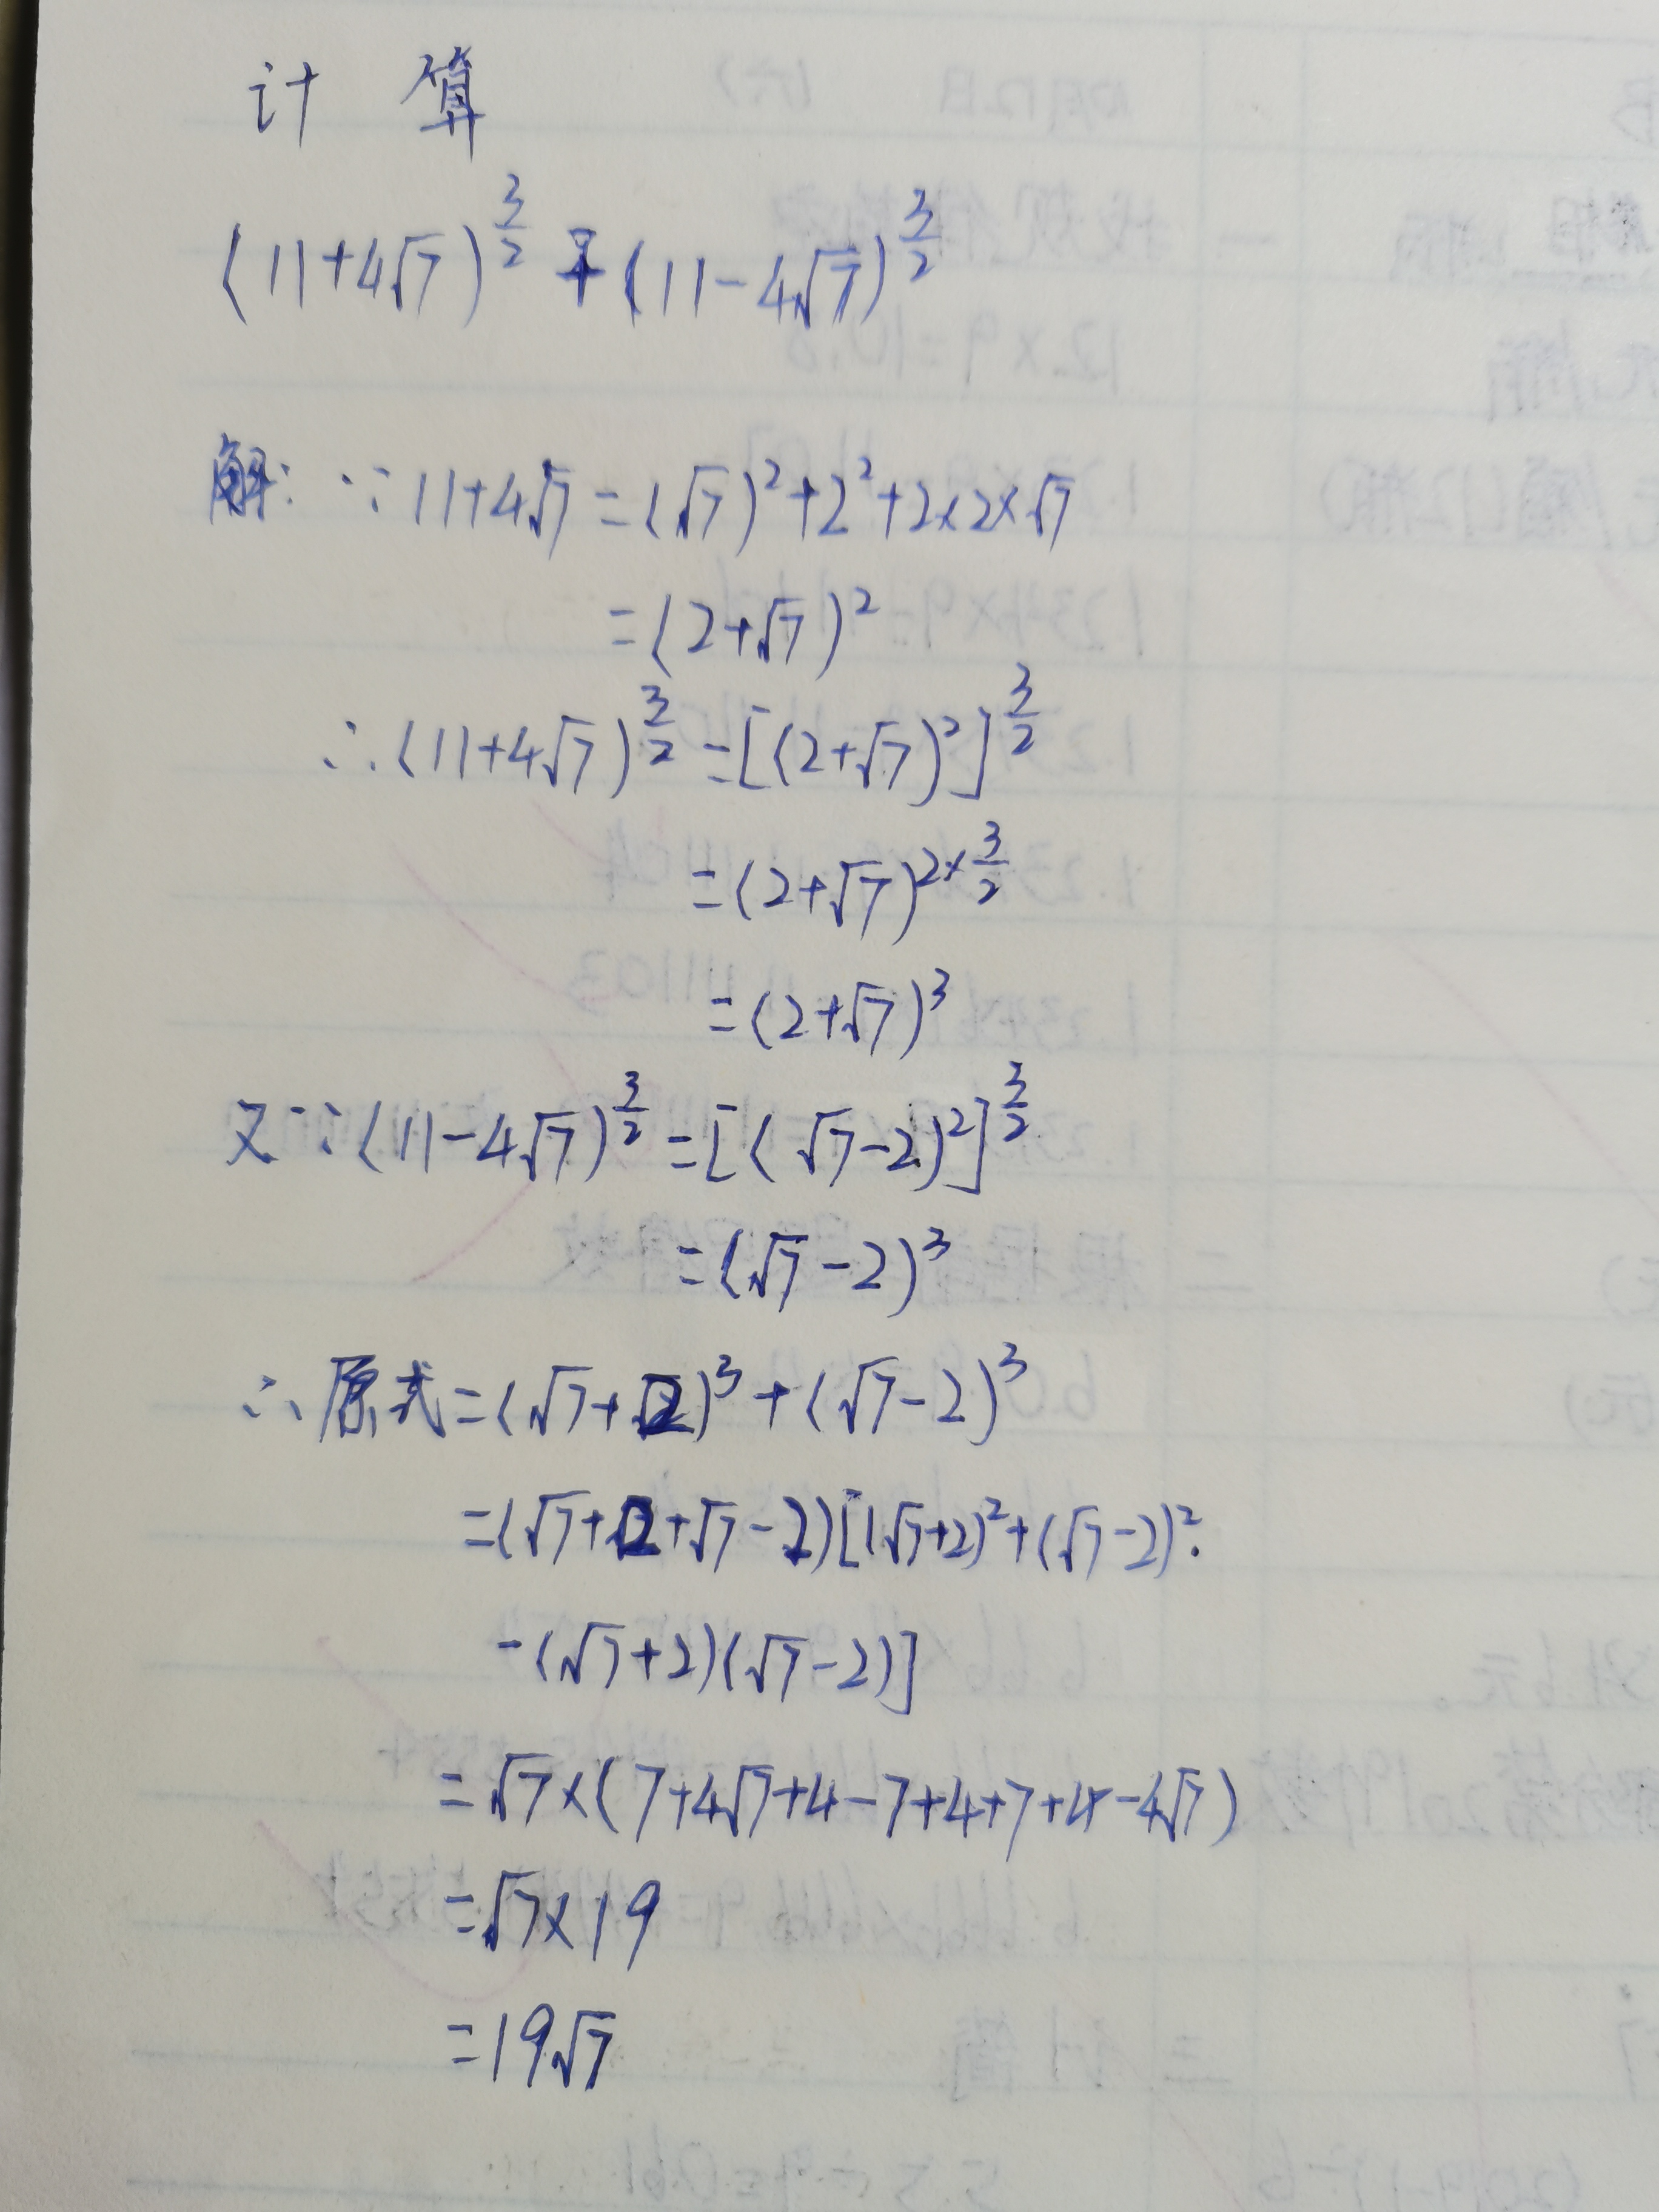 计 算
(11+4√7)^(3/2) + (11-4√7)^(3/2)
解: ∵ 11+4√7 = (√7)²+2²+2×2×√7
=(2+√7)²
∴ (11+4√7)^(3/2) = [(2+√7)²]^(3/2)
=(2+√7)^(2×3/2)
=(2+√7)³
又∵ (11-4√7)^(3/2) = [(√7-2)²]^(3/2)
=(√7-2)³
∴ 原式=(√7+2)³+(√7-2)³
=(√7+2+√7-2)[(√7+2)²+(√7-2)²
-(√7+2)(√7-2)]
=√7×(7+4√7+4-7+4+7+4-4√7)
=√7×19
=19√7